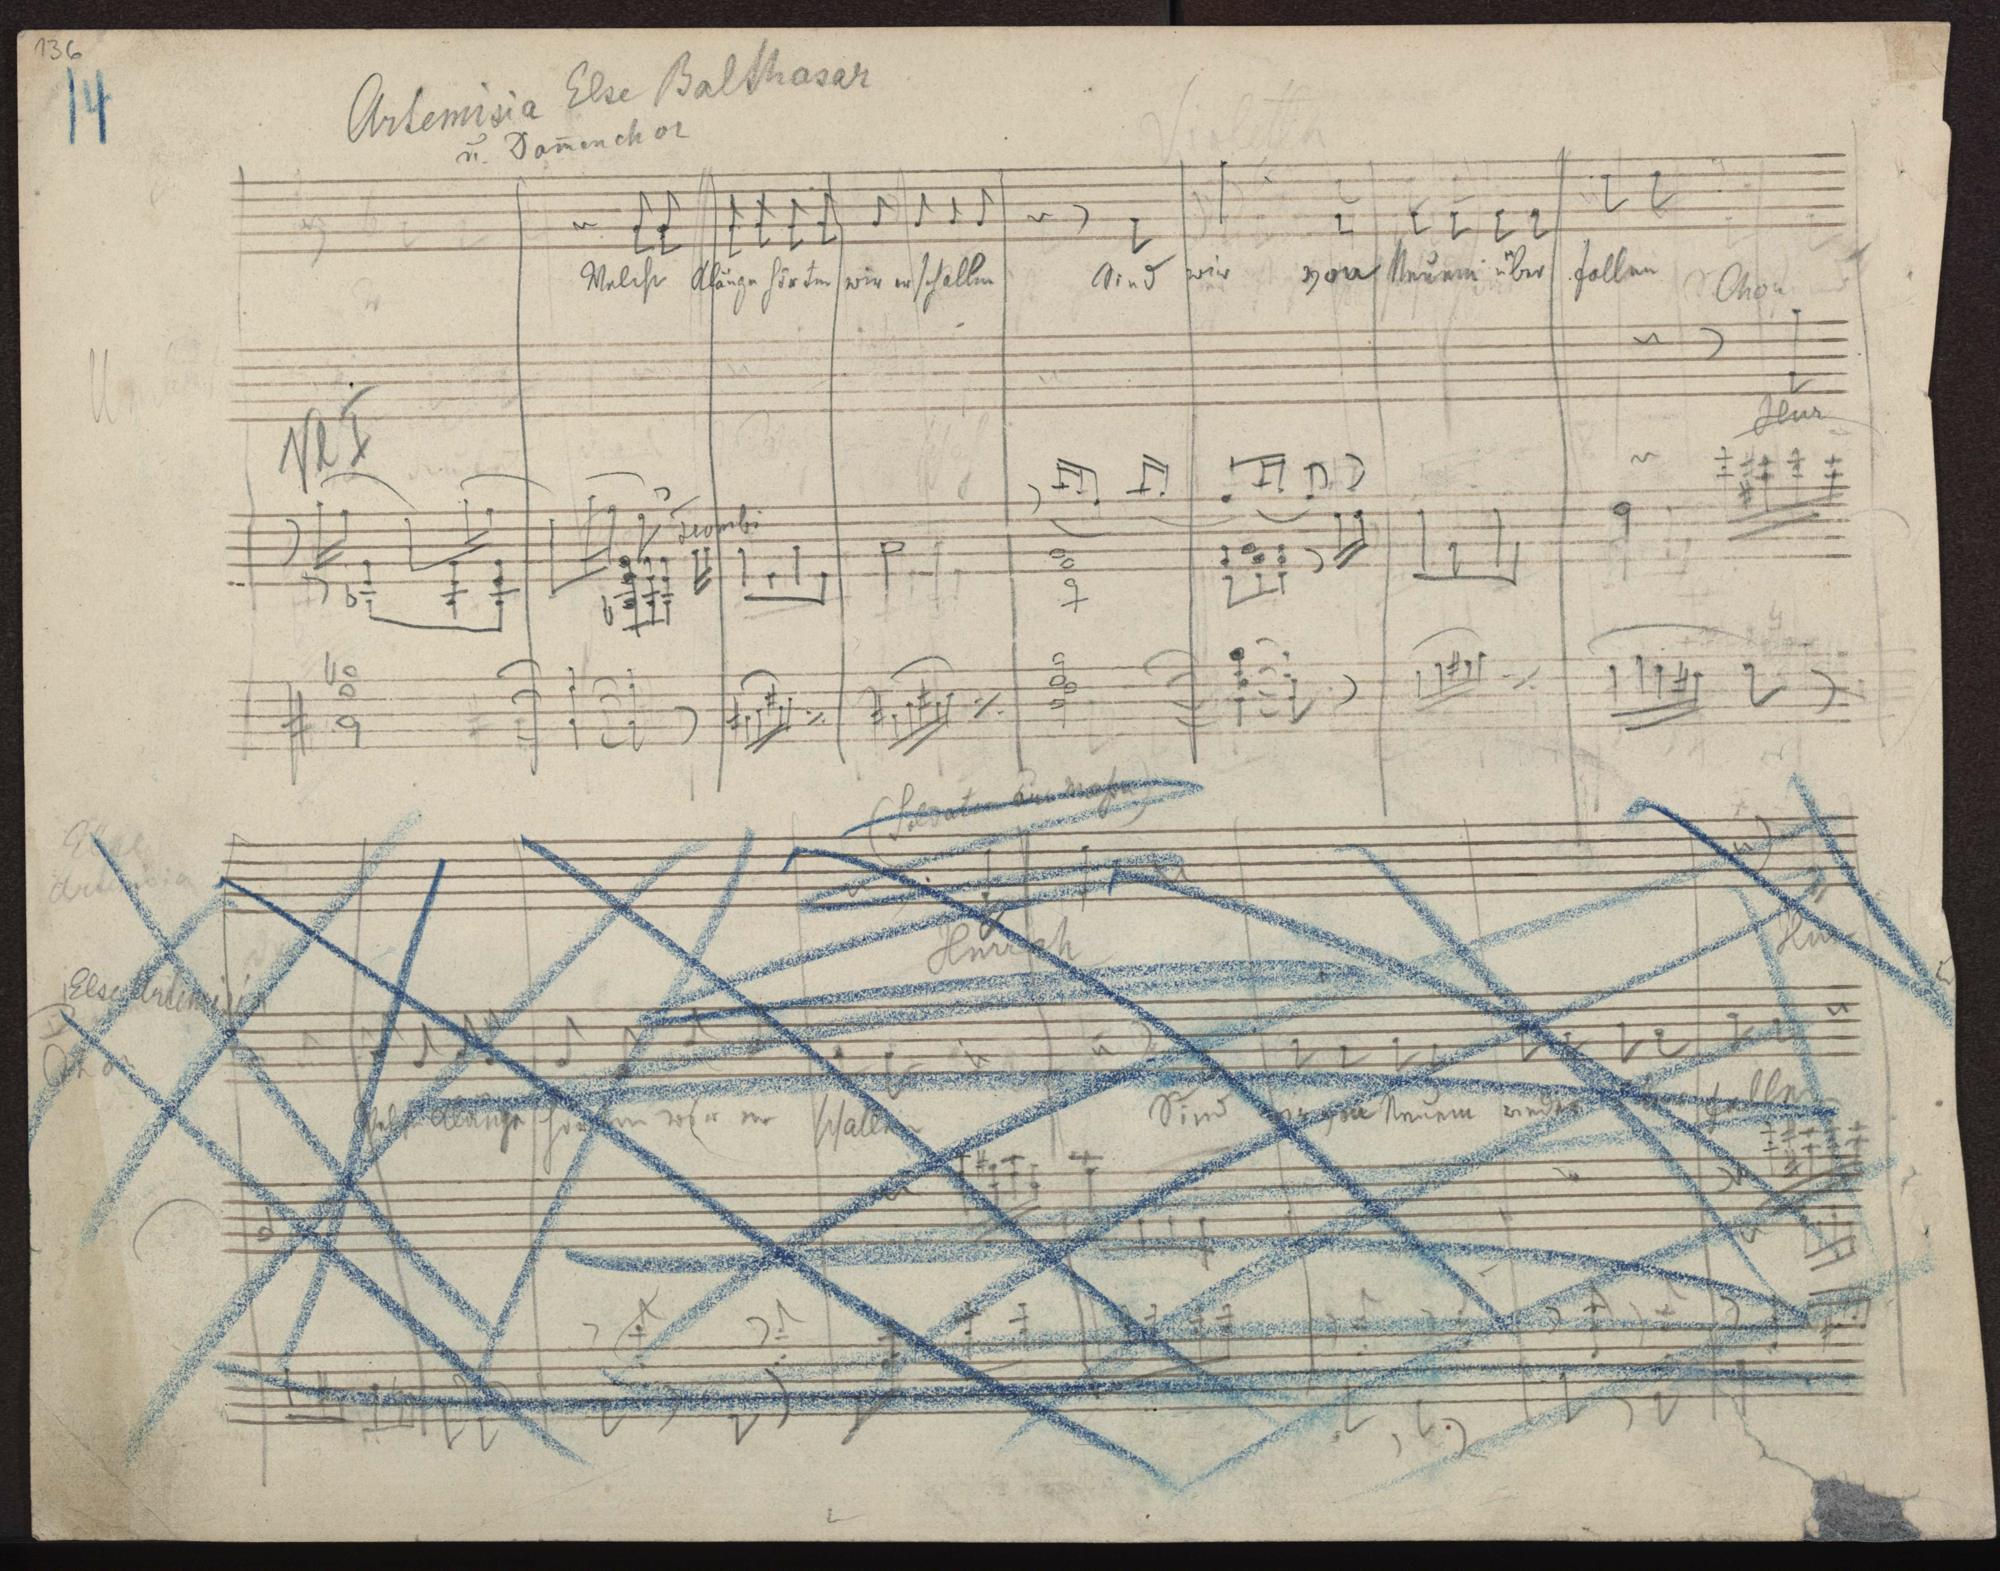 136
14
Artemisia Else Balthasar
u. Damenchor
Violetta
Welche Klänge hörten wir erschallen Sind wir von Neuem über fallen Chor
Hur
Vl I
Trombi
(Soldaten
Else
Artemisia
Hurrah
Hur
Else Artemisia
Chor
Welche Klänge hörten wir er schallen Sind wir von Neuem wieder fallen